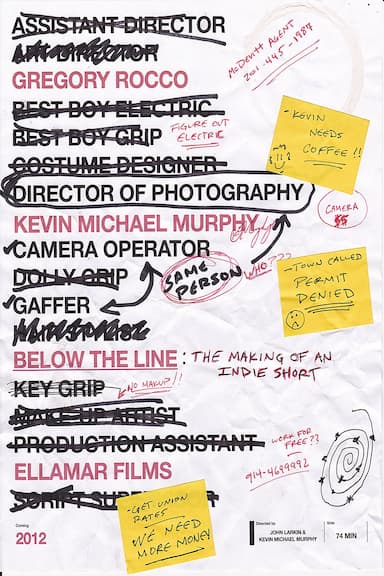 ASSISTANT DIRECTOR
ART DIRECTOR
GREGORY ROCCO
BEST BOY ELECTRIC
BEST BOY GRIP
COSTUME DESIGNER
DIRECTOR OF PHOTOGRAPHY
KEVIN MICHAEL MURPHY
CAMERA OPERATOR
DOLLY GRIP
GAFFER
BELOW THE LINE : THE MAKING OF AN
INDIE SHORT
KEY GRIP
NO MAKUP!!
MAKE-UP ARTIST
PRODUCTION ASSISTANT
ELLAMAR FILMS
SCRIPT
McDEVITT AGENT
201-445-1987
FIGURE OUT
ELECTRIC
- KEVIN
NEEDS
COFFEE!!
CAMERA
$$
SAME
PERSON
WHO???
- TOWN CALLED
PERMIT
DENIED
WORK FOR
FREE??
914-4699992
- GET UNION
RATES
WE NEED
MORE MONEY
Coming
2012
Directed by
JOHN LARKIN &
KEVIN MICHAEL MURPHY
74 MIN